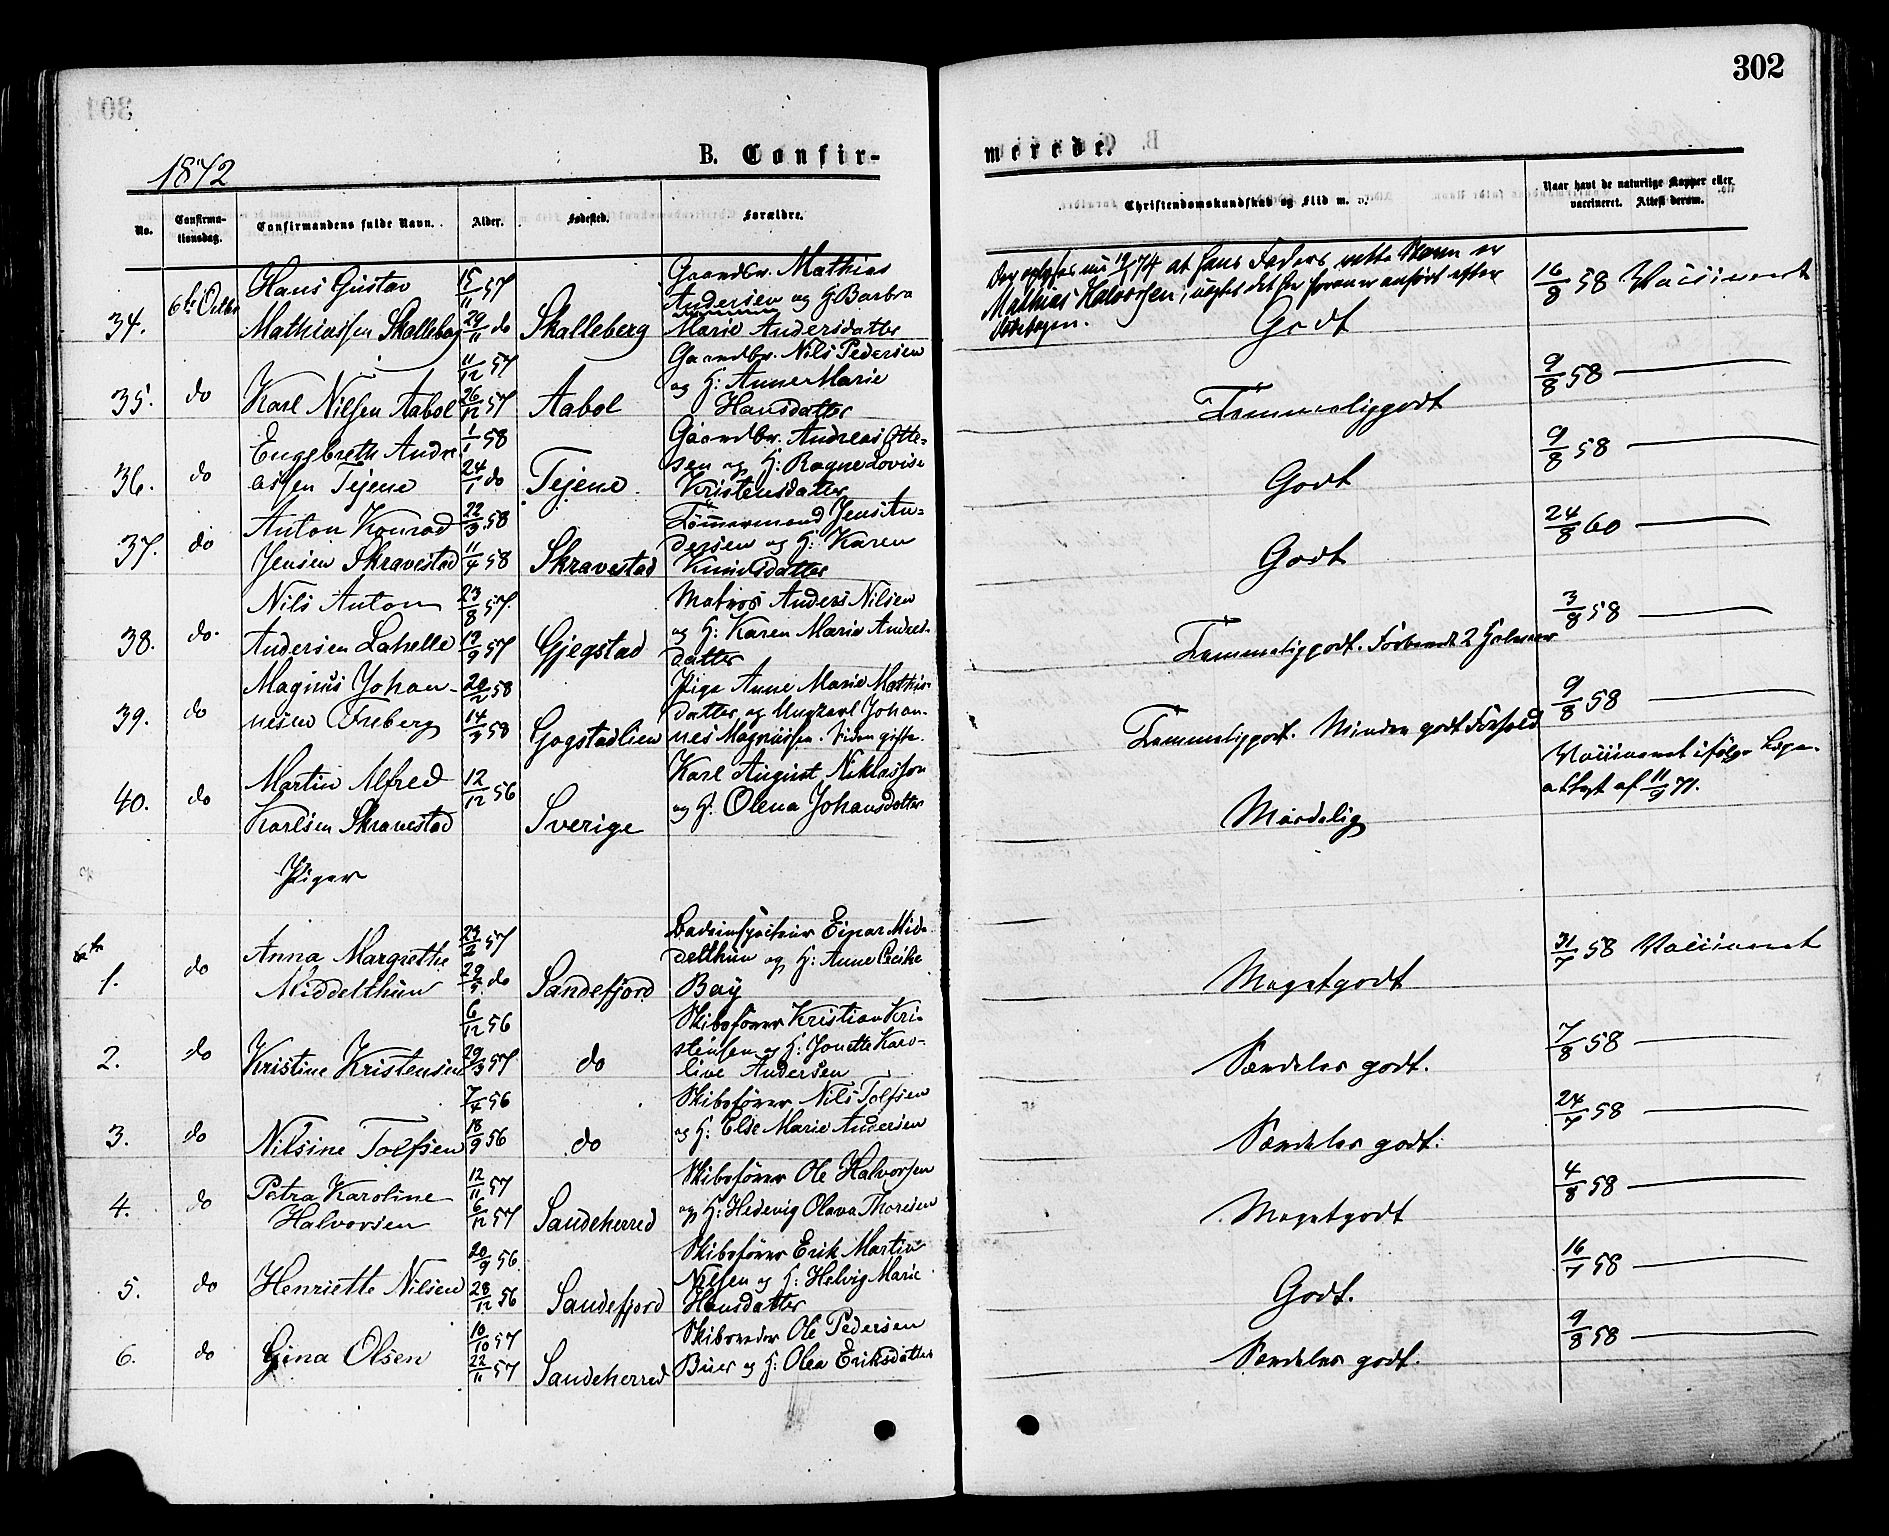 302
1872
B. Confir-
merede.
No.
Confirma-
tionsdag.
Confirmandens fulde Navn.
Alder.
Fødested.
Forældre.
Christendomskundskab og Flid m. v.
Naar havt de naturlige Kopper eller
vaccineret. Attest derom.
34.
6te Octbr
Hans Gustav
Mathiassen Skalleberg
15/11 57
29/11 do
Skalleberg
Gaardbr. Mathias
Andersen og H: Barbra
Marie Andersdatter
19/1 74 at hans Faders rette Navn er
Mathias Halvorsen,
Godt
16/8 58 Vaccineret
35.
do
Karl Nilsen Aabol
11/12 57
26/12 57
Aabol
Gaardbr. Nils Pedersen
og H: Anne Marie
Hansdatter
Temmeliggodt
9/8 58
36.
do
Engebreth Andre
assen Tejene
1/1 58
24/1 do
Tejene
Gaardbr. Andreas Otte-
sen og H: Ragne Lovise
Kristensdatter
Godt
9/8 58
37.
do
Anton Konrad
Jensen Skravestad
22/3 58
11/4 58
Skravestad
Tømmermand Jens An-
dersen og H: Karen
Knudsdatter
Godt
24/8 60
38.
do.
Nils Anton
Andersen Lahelle
23/8 57.
12/9 57
Gjegstad
Matros Anders Nilsen
og H: Karen Marie Andres-
datter
Temmeliggodt.
3/8 58
39.
do
Magnus Johan-
nesen Freberg
20/2 58
14/3 58
Gogstadlien
Pige Anne Marie Mathis-
datter og Ungkarl Johan-
nes Magnussen. Siden gifte.
Temmeliggodt. Mindre godt Forhold
9/8 58
40.
do
Martin Alfred
Karlsen Skravestad
12/12 56
Sverige
Karl August Niklasson
og H: Olena Johansdatter
Maadelig
Vaccineret ifølge Læge-
attest af 11/9 71.
Piger
1.
do
Anna Margrethe
Middelthun
23/2 57
29/5 do
Sandefjord
Badeinspecteur Einar Mid-
delthun og H: Anne Cecilie
Bøy
Megetgodt
31/7 58 Vaccineret
2.
do
Kristine Kristensen
6/12 56
29/3 57
do
Skibsfører Kristian Kri-
stensen og H: Jonette Karo-
line Andersen
Særdeles godt.
7/8 58
3.
do
Nilsine Tolfsen
7/4 56
18/9 56
do
Skibsfører Nils Tolfsen
og H: Else Marie Andersen
Særdeles godt.
24/7 58
4.
do
Petra Karoline
Halvorsen
12/11 57
6/12 57
Sandeherred
Skibsfører Ole Halvorsen
og H: Hedevig Olava Thoresen
Megetgodt
4/8 58
5.
do
Henriette Nilsen
20/9 56.
28/12 56
Sandefjord
Skibsfører Erik Martin
Nilsen og H: Helvig Marie
Hansdatter
Godt.
16/7 58
6.
do
Gina Olsen
10/10 57
22/11 57
Sandeherred
Skibsreder Ole Pedersen
Buer og H: Olea Eriksdatter
Særdeles godt.
9/8 58